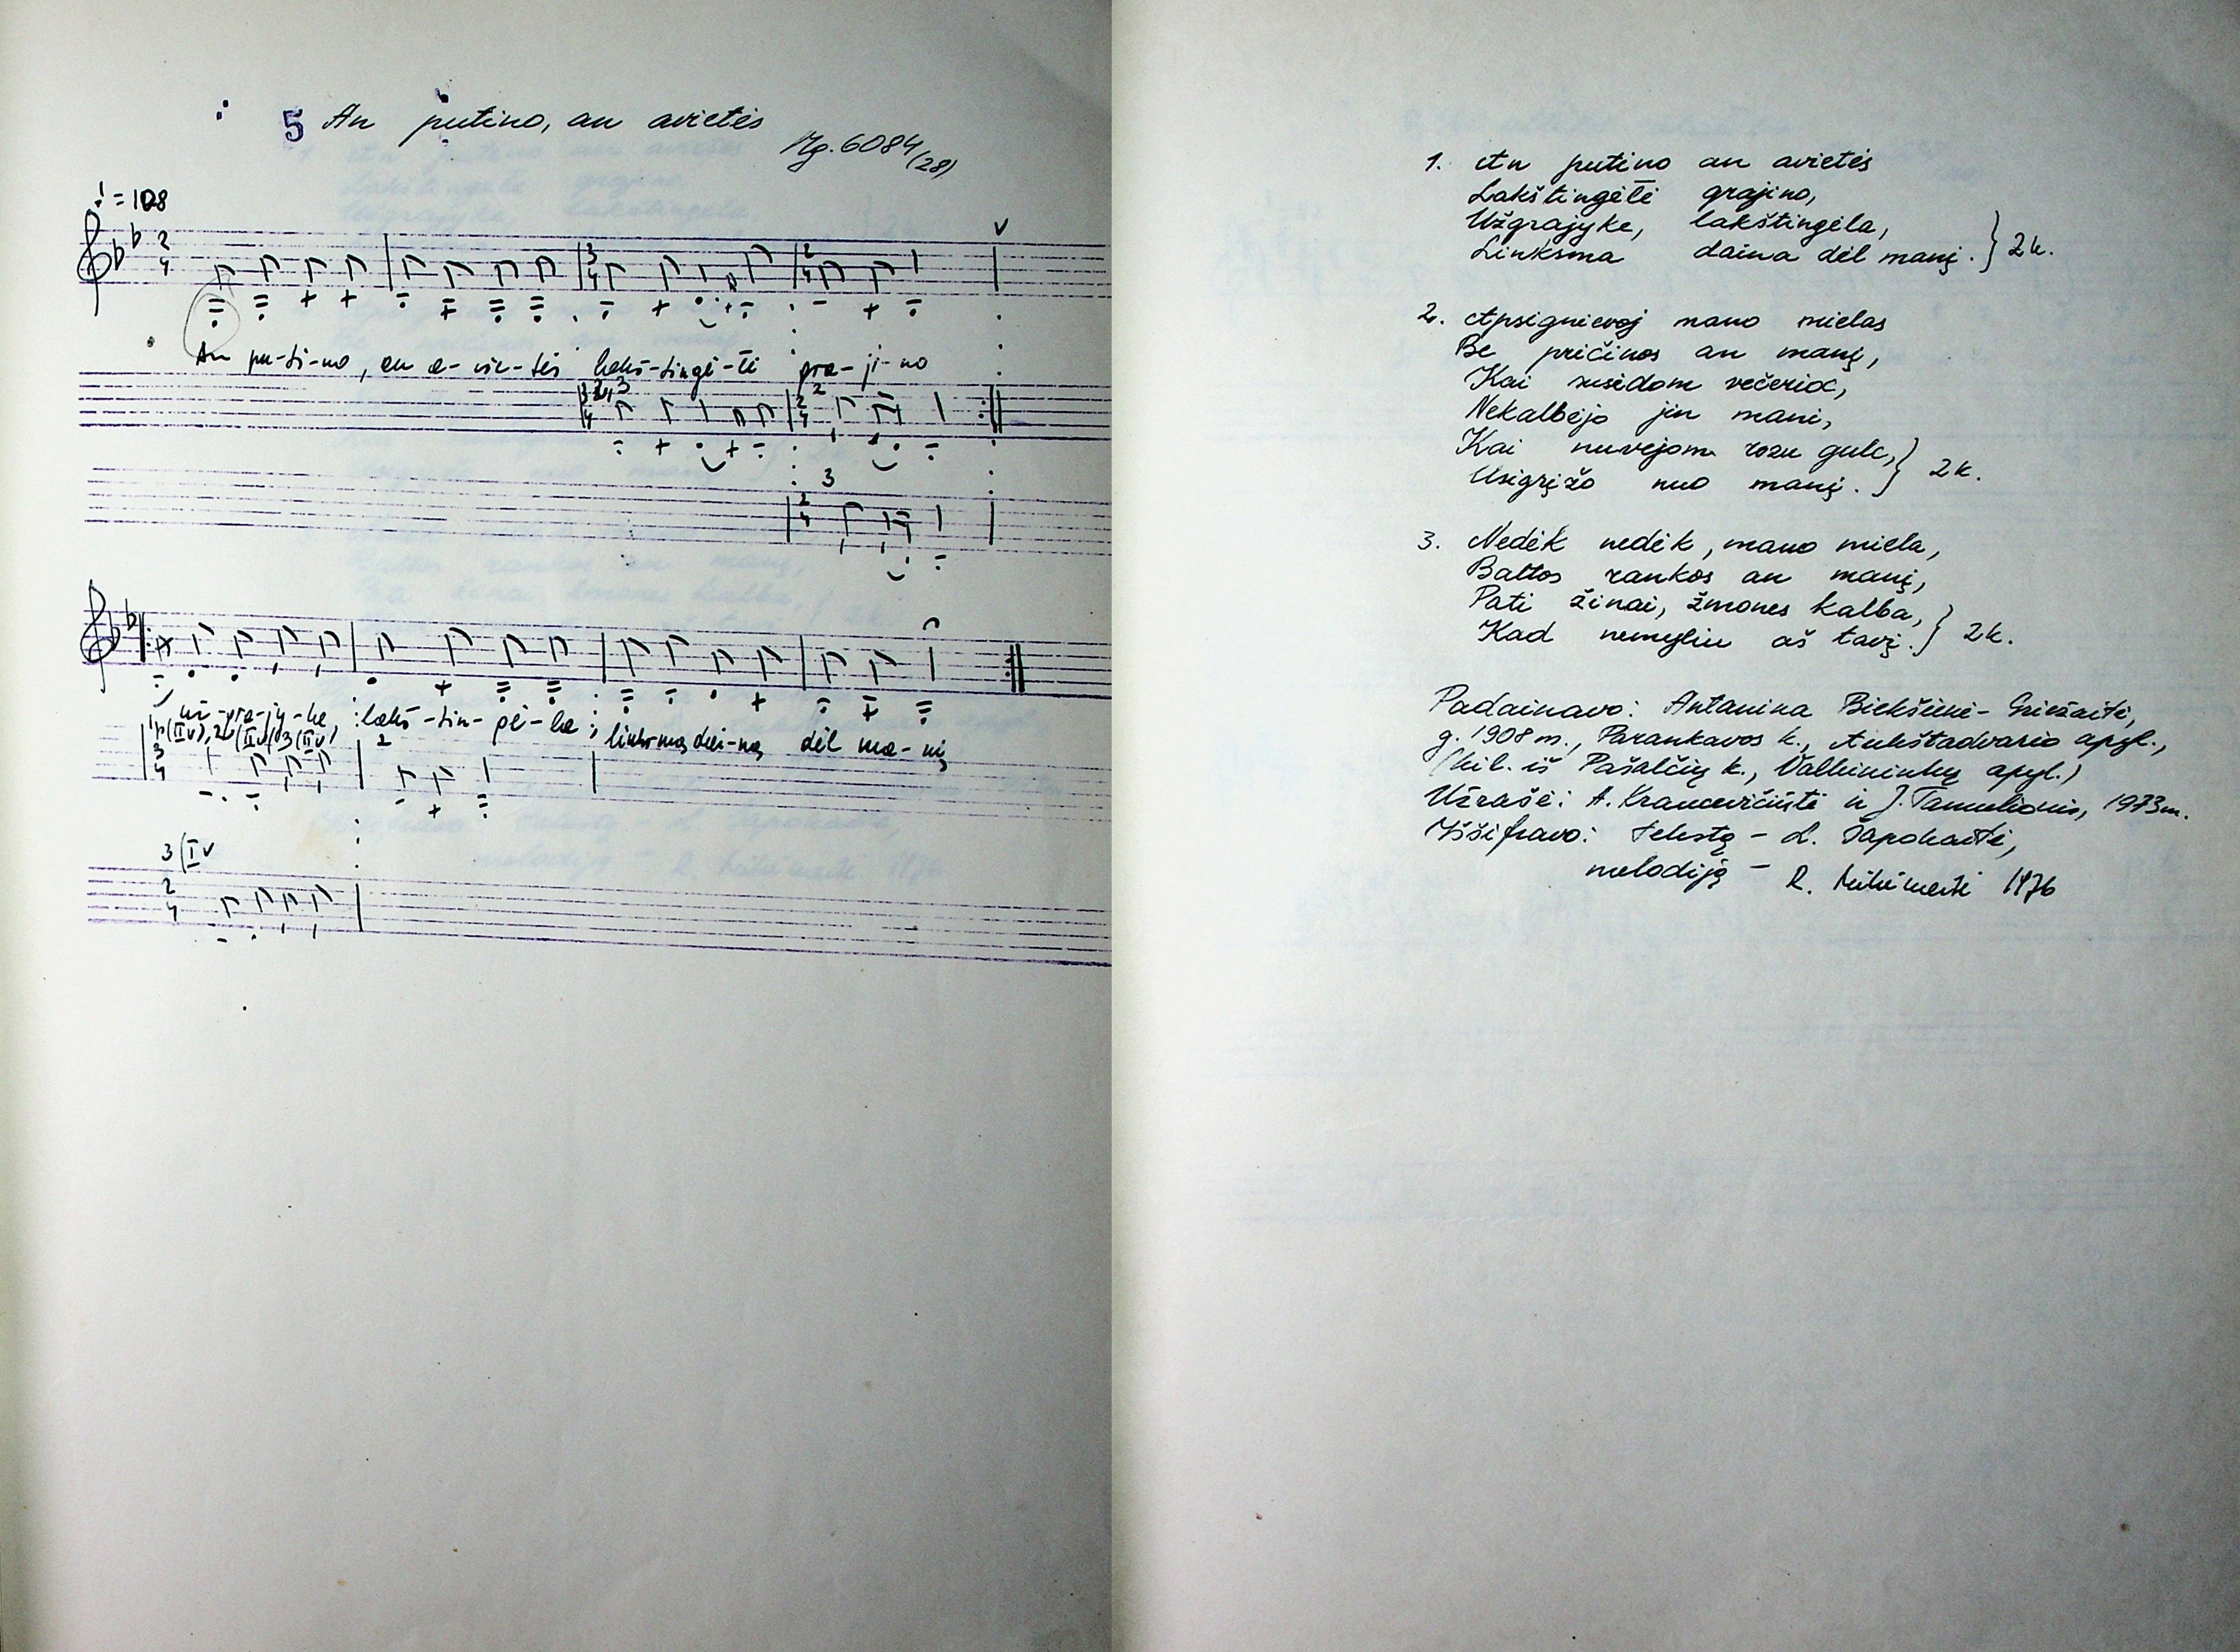 5 An putino, an avietės
Mg. 6084 (28)
♩ = 108
An pu-ti-no, an a-vie-tės lakš-tingė-lė gra-ji-no
už-gra-jy-ke, lakš-tin-gė-la, linksmą dai-ną dėl ma-nį
1. An putino an avietės
Lakštingėlė grajino,
Užgrajyke, lakštingėla,
Linksma daina dėl manį. } 2 k.
2. Apsignievoj mano mielas
Be pričinos an manį,
Kai susėdom večeriot,
Nekalbėjo jin mani,
Kai nuvėjom rozu gulc, } 2 k.
Usigrįžo nuo manį.
3. Nedėk nedėk, mano miela,
Baltos rankos an manį,
Pati žinai, žmonės kalba, } 2 k.
Kad nemyliu aš tavį.
Padainavo: Antanina Biekšienė-
g. 1908 m., Parankavos k., Aukštadvario apyl.,
(kil. iš Pašalčių k., Valkininkų apyl.)
Užrašė: A. Krancevičiūtė ir J. Tamulionis, 1973 m.
Iššifravo: tekstą - L. Šapokaitė,
melodiją - R. 1976